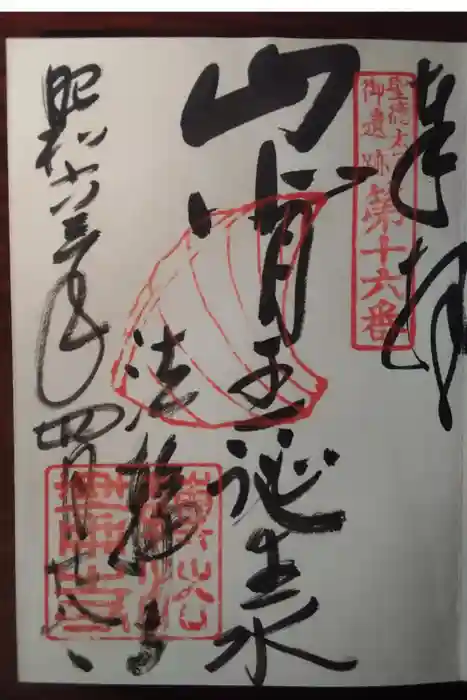 奉拝
聖徳太子
御遺跡第十六番
山背王誕生水
法 寺
昭和六三年四月廿八日